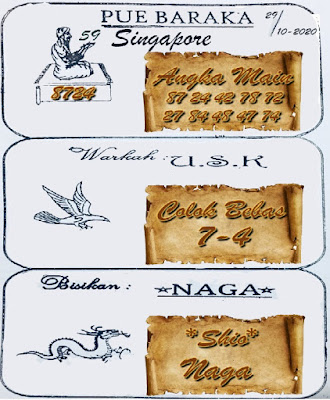 PUE BARAKA
29/10-2020
Singapore
59
8734
Angka Main
87 24 42 78 72
27 84 48 47 74
Warkah : U.S.K
Colok Bebas
7-4
Bisikan : *NAGA*
*Shio*
Naga